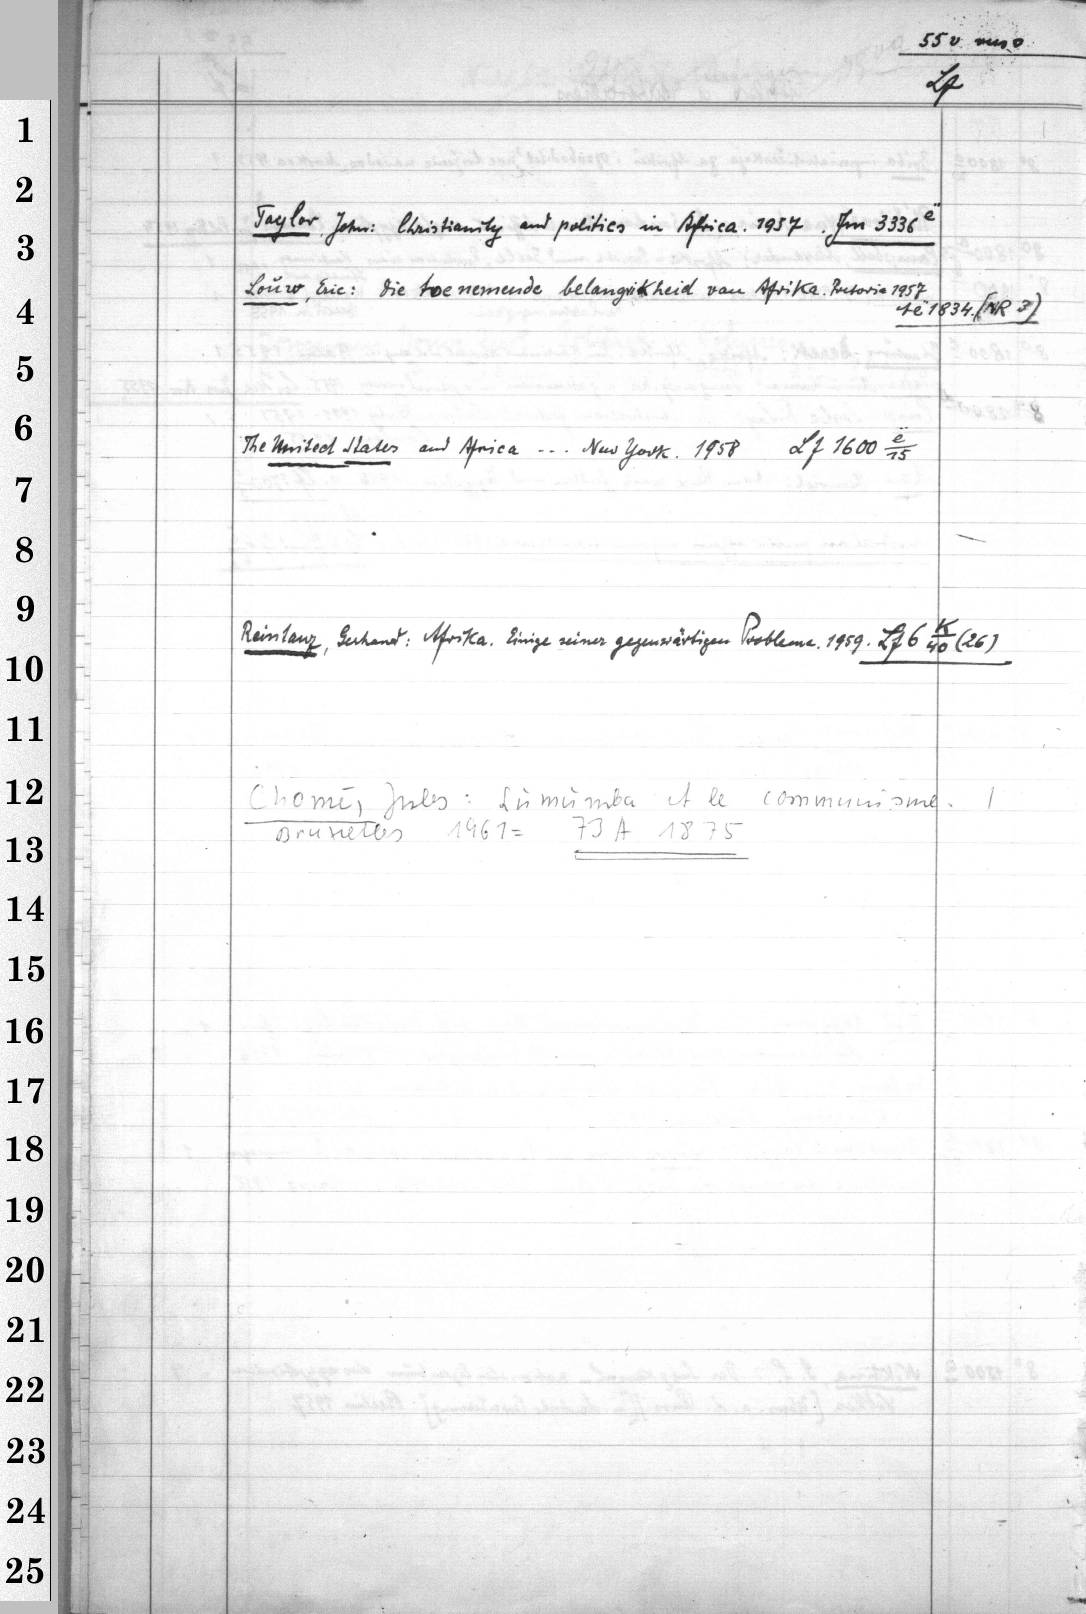 55v verso
Lf
1
2
Taylor, John: Christianity and politics in Africa. 1957. Jm 3336 ë
3
Louw, Eric: Die toenemende belangrikheid van Afrika. Pretoria 1957
4
1834. (NR 3)
5
6
The United States and Africa ... New York. 1958 Lf 1600 ë/15
7
8
9
Reintanz, Gerhard: Afrika. Einige seiner gegenwärtigen Probleme. 1959. Lf 6 K/40 (26)
10
11
12
Chomé, Jules: Lumumba et le communisme. 1
Bruxelles 1961= 73 A 1875
13
14
15
16
17
18
19
20
21
22
23
24
25